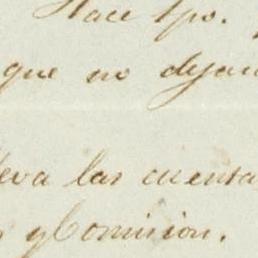 Hace tpo.
que no dejan
eva las cuenta
y Comision.